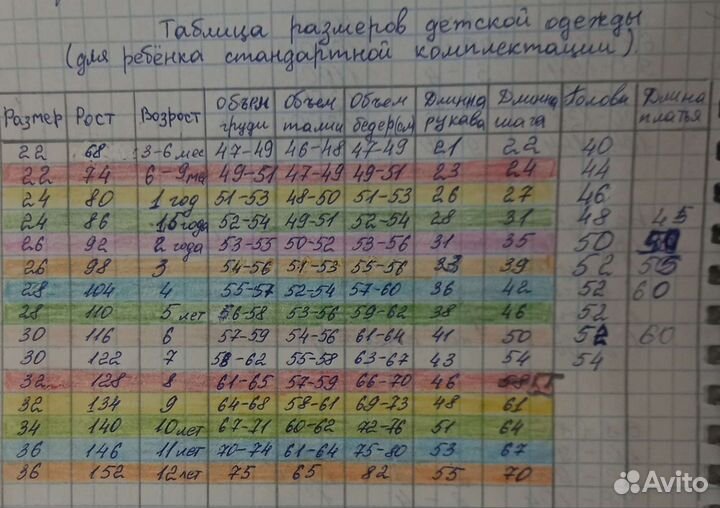 Таблица размеров детской одежды
(для ребёнка стандартной комплектации).
Размер Рост Возрост Объем груди Объем талии Объем бедер(см) Длинна рукава Длинна шага Головы Длина платья
22 68 3-6 мес 47-49 46-48 47-49 21 22 40
22 74 6-9 ме 49-51 47-49 49-51 23 24 44
24 80 1 год 51-53 48-50 51-53 26 27 46
24 86 1,5 года 52-54 49-51 52-54 28 31 48 45
26 92 2 года 53-55 50-52 53-56 31 35 50 50
26 98 3 54-56 51-53 55-56 33 39 52 55
28 104 4 55-57 52-54 57-60 36 42 52 60
28 110 5 лет 56-58 53-56 59-62 38 46 52
30 116 6 57-59 54-56 61-64 41 50 52 60
30 122 7 58-62 55-58 63-67 43 54 54
32 128 8 61-65 57-59 66-70 46
32 134 9 64-68 58-61 69-73 48 61
34 140 10 лет 67-71 60-62 72-76 51 64
36 146 11 лет 70-74 61-64 75-80 53 67
36 152 12 лет 75 65 82 55 70
Avito